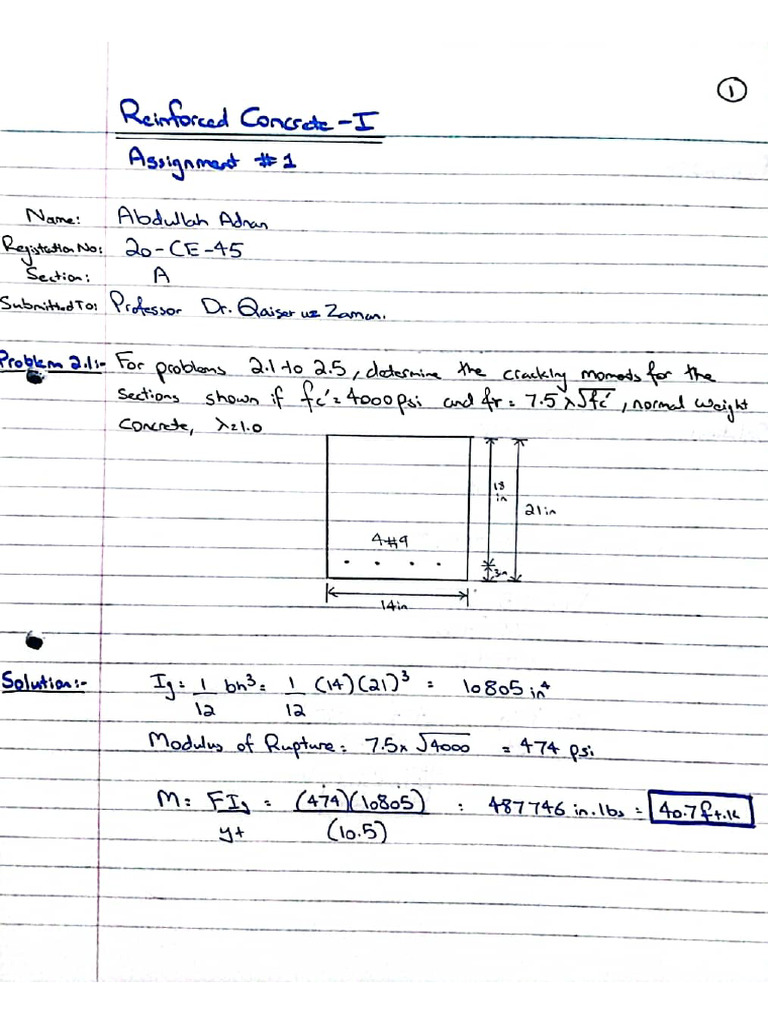 1
Reinforced Concrete - I
Assignment #1
Name: Abdullah Adnan
Registration No: 20-CE-45
Section: A
Submitted To: Professor Dr. Qaiser uz Zaman.
Problem 2.1:- For problems 2.1 to 2.5, determine the cracking moments for the
sections shown if fc' = 4000 psi and fr = 7.5 λ √fc', normal weight
concrete, λ=1.0
18 in
21 in
4#9
3in
14in
Solution:- Ig = 1/12 bh³ = 1/12 (14)(21)³ = 10805 in⁴
Modulus of Rupture = 7.5 x √4000 = 474 psi
M = FIg/yt = (474)(10805)/(10.5) = 487746 in.lbs = 40.7 ft.k